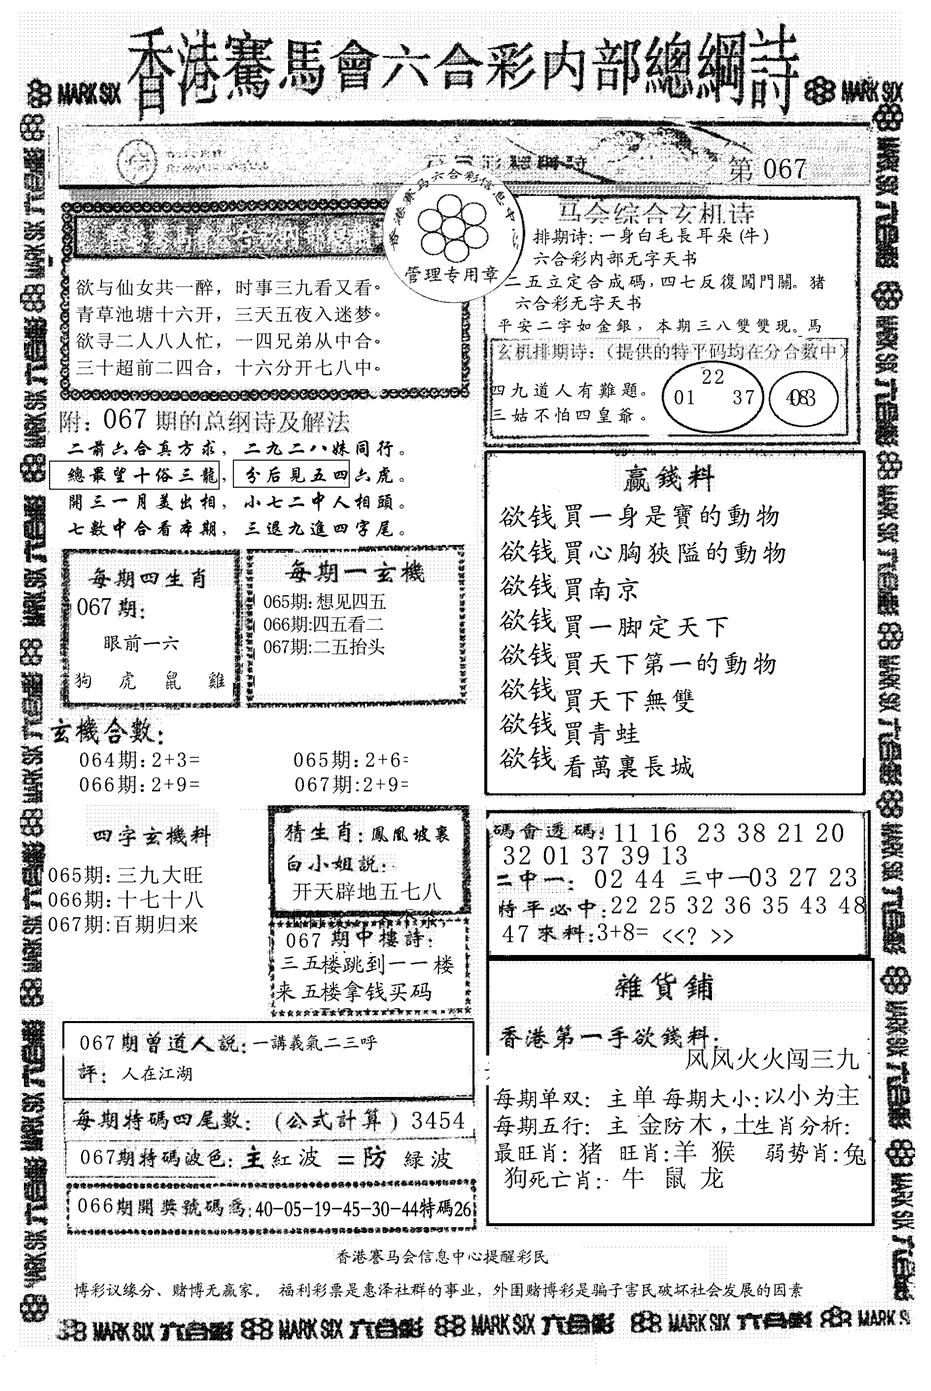 香港賽馬會六合彩内部總綱詩
MARK SIX
MARK SIX
第 067
香港赛马六合彩信息中心
管理专用章
欲与仙女共一醉，时事三九看又看。
青草池塘十六开，三天五夜入迷梦。
欲寻二人八人忙，一四兄弟从中合。
三十超前二四合，十六分开七八中。
马会综合玄机诗
排期诗:一身白毛長耳朵(牛)
六合彩内部无字天书
二五立定合成碼,四七反復闖門關。猪
六合彩无字天书
平安二字如金銀，本期三八雙雙現。馬
玄机排期诗:（提供的特平码均在分合数中）
四九道人有難題。
三姑不怕四皇爺。
22
01 37
附: 067 期的总纲诗及解法
二前六合真方求，二九二八妹同行。
總最望十俗三龍，分后見五四六虎。
開三一月美出相，小七二中人相頭。
七數中合看本期，三退九進四字尾。
赢錢料
欲钱買一身是寶的動物
欲钱買心胸狹隘的動物
欲钱買南京
欲钱買一脚定天下
欲钱買天下第一的動物
欲钱買天下無雙
欲钱買青蛙
欲钱看萬裏長城
每期四生肖
067期:
眼前一六
狗 虎 鼠 雞
每期一玄機
065期:想见四五
066期:四五看二
067期:二五抬头
玄機合數:
064期:2+3= 065期:2+6=
066期:2+9= 067期:2+9=
四字玄機料
065期:三九大旺
066期:十七十八
067期:百期归来
猜生肖:鳳凰坡裏
白小姐説:
开天辟地五七八
067期中樓詩:
三五楼跳到一一楼
来五楼拿钱买码
碼會透碼:11 16 23 38 21 20
32 01 37 39 13
二中一: 02 44 三中一03 27 23
特平必中:22 25 32 36 35 43 48
47來料:3+8= <<? >>
雜貨鋪
香港第一手欲錢料:
风风火火闯三九
每期单双: 主单每期大小:以小为主
每期五行: 主 金防木,土生肖分析:
最旺肖: 猪 旺肖:羊 猴 弱势肖:兔
狗死亡肖: 牛 鼠 龙
067期曾道人説:一講義氣二三呼
評: 人在江湖
每期特碼四尾數:（公式計算）3454
067期特碼波色:主紅波 =防 緑波
066期開獎號碼爲:40-05-19-45-30-44特碼26
香港赛马会信息中心提醒彩民
博彩议缘分、赌博无赢家。 福利彩票是惠泽社群的事业，外围赌博彩是骗子害民破坏社会发展的因素
MARK SIX 六合彩 MARK SIX 六合彩 MARK SIX 六合彩 MARK SIX 六合彩 MARK SIX